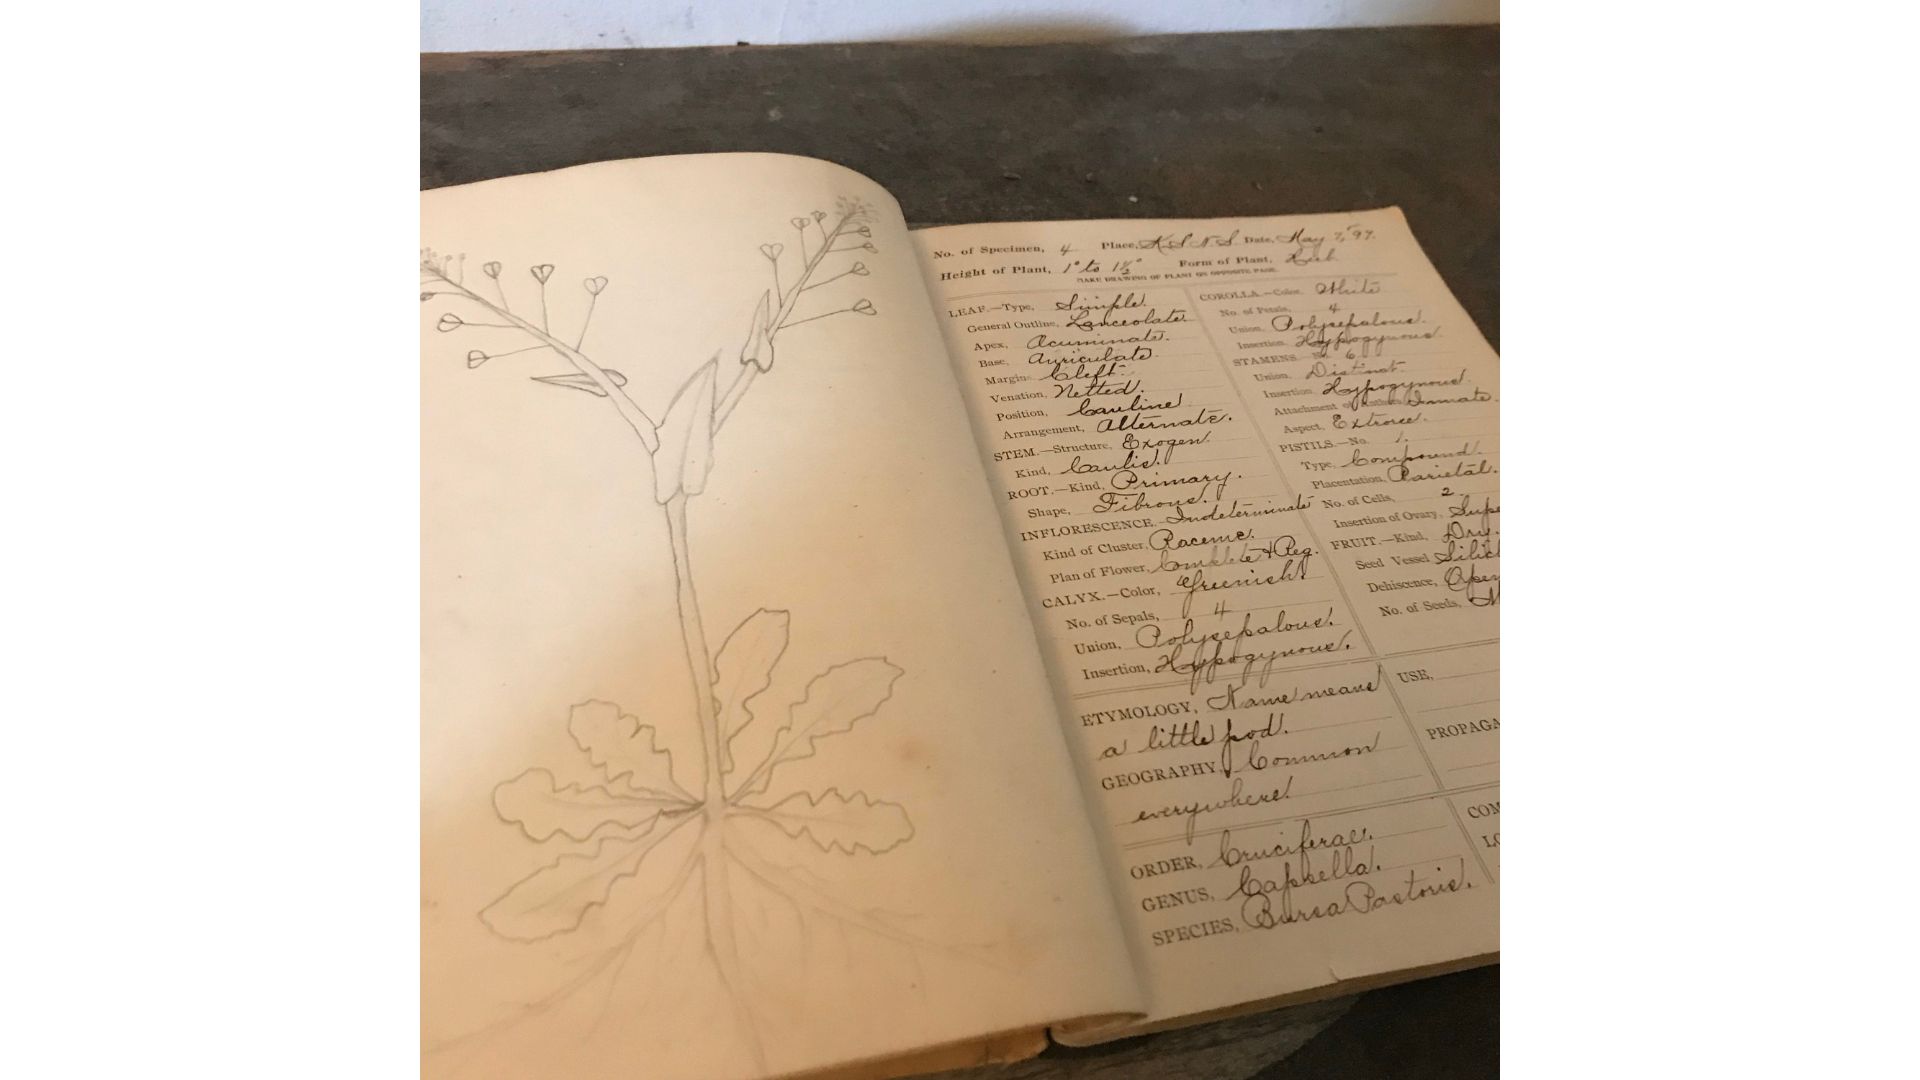 No. of Specimen, 4 Place, K S N S Date, May 7, '97.
Height of Plant, 1° to 1½° Form of Plant, Herb
MAKE DRAWING OF PLANT ON OPPOSITE PAGE.
LEAF.—Type, Simple.
General Outline, Lanceolate.
Apex, Acuminate.
Base, Auriculate.
Margin, Cleft.
Venation, Netted.
Position, Cauline.
Arrangement, Alternate.
STEM.—Structure, Exogen.
Kind, Caulis.
ROOT.—Kind, Primary.
Shape, Fibrous.
INFLORESCENCE, Indeterminate
Kind of Cluster, Raceme.
Plan of Flower, Complete & Reg.
CALYX.—Color, Greenish.
No. of Sepals, 4
Union, Polysepalous.
Insertion, Hypogynous.
COROLLA.—Color, White
No. of Petals, 4
Union, Polysepalous.
Insertion, Hypogynous.
STAMENS.—No. 6
Union, Distinct.
Insertion, Hypogynous.
Attachment of Anthers, Innate.
Aspect, Extrorse.
PISTILS.—No. 1.
Type, Compound.
Placentation, Parietal.
No. of Cells, 2
Insertion of Ovary, Supe
FRUIT.—Kind, Dry.
Seed Vessel Silicl
Dehiscence, Open
No. of Seeds, M
ETYMOLOGY, Name means
a little pod.
GEOGRAPHY, Common
everywhere.
USE,
PROPAGA
ORDER, Cruciferae.
GENUS, Capsella.
SPECIES, Bursa Pastoris.
COM
LO